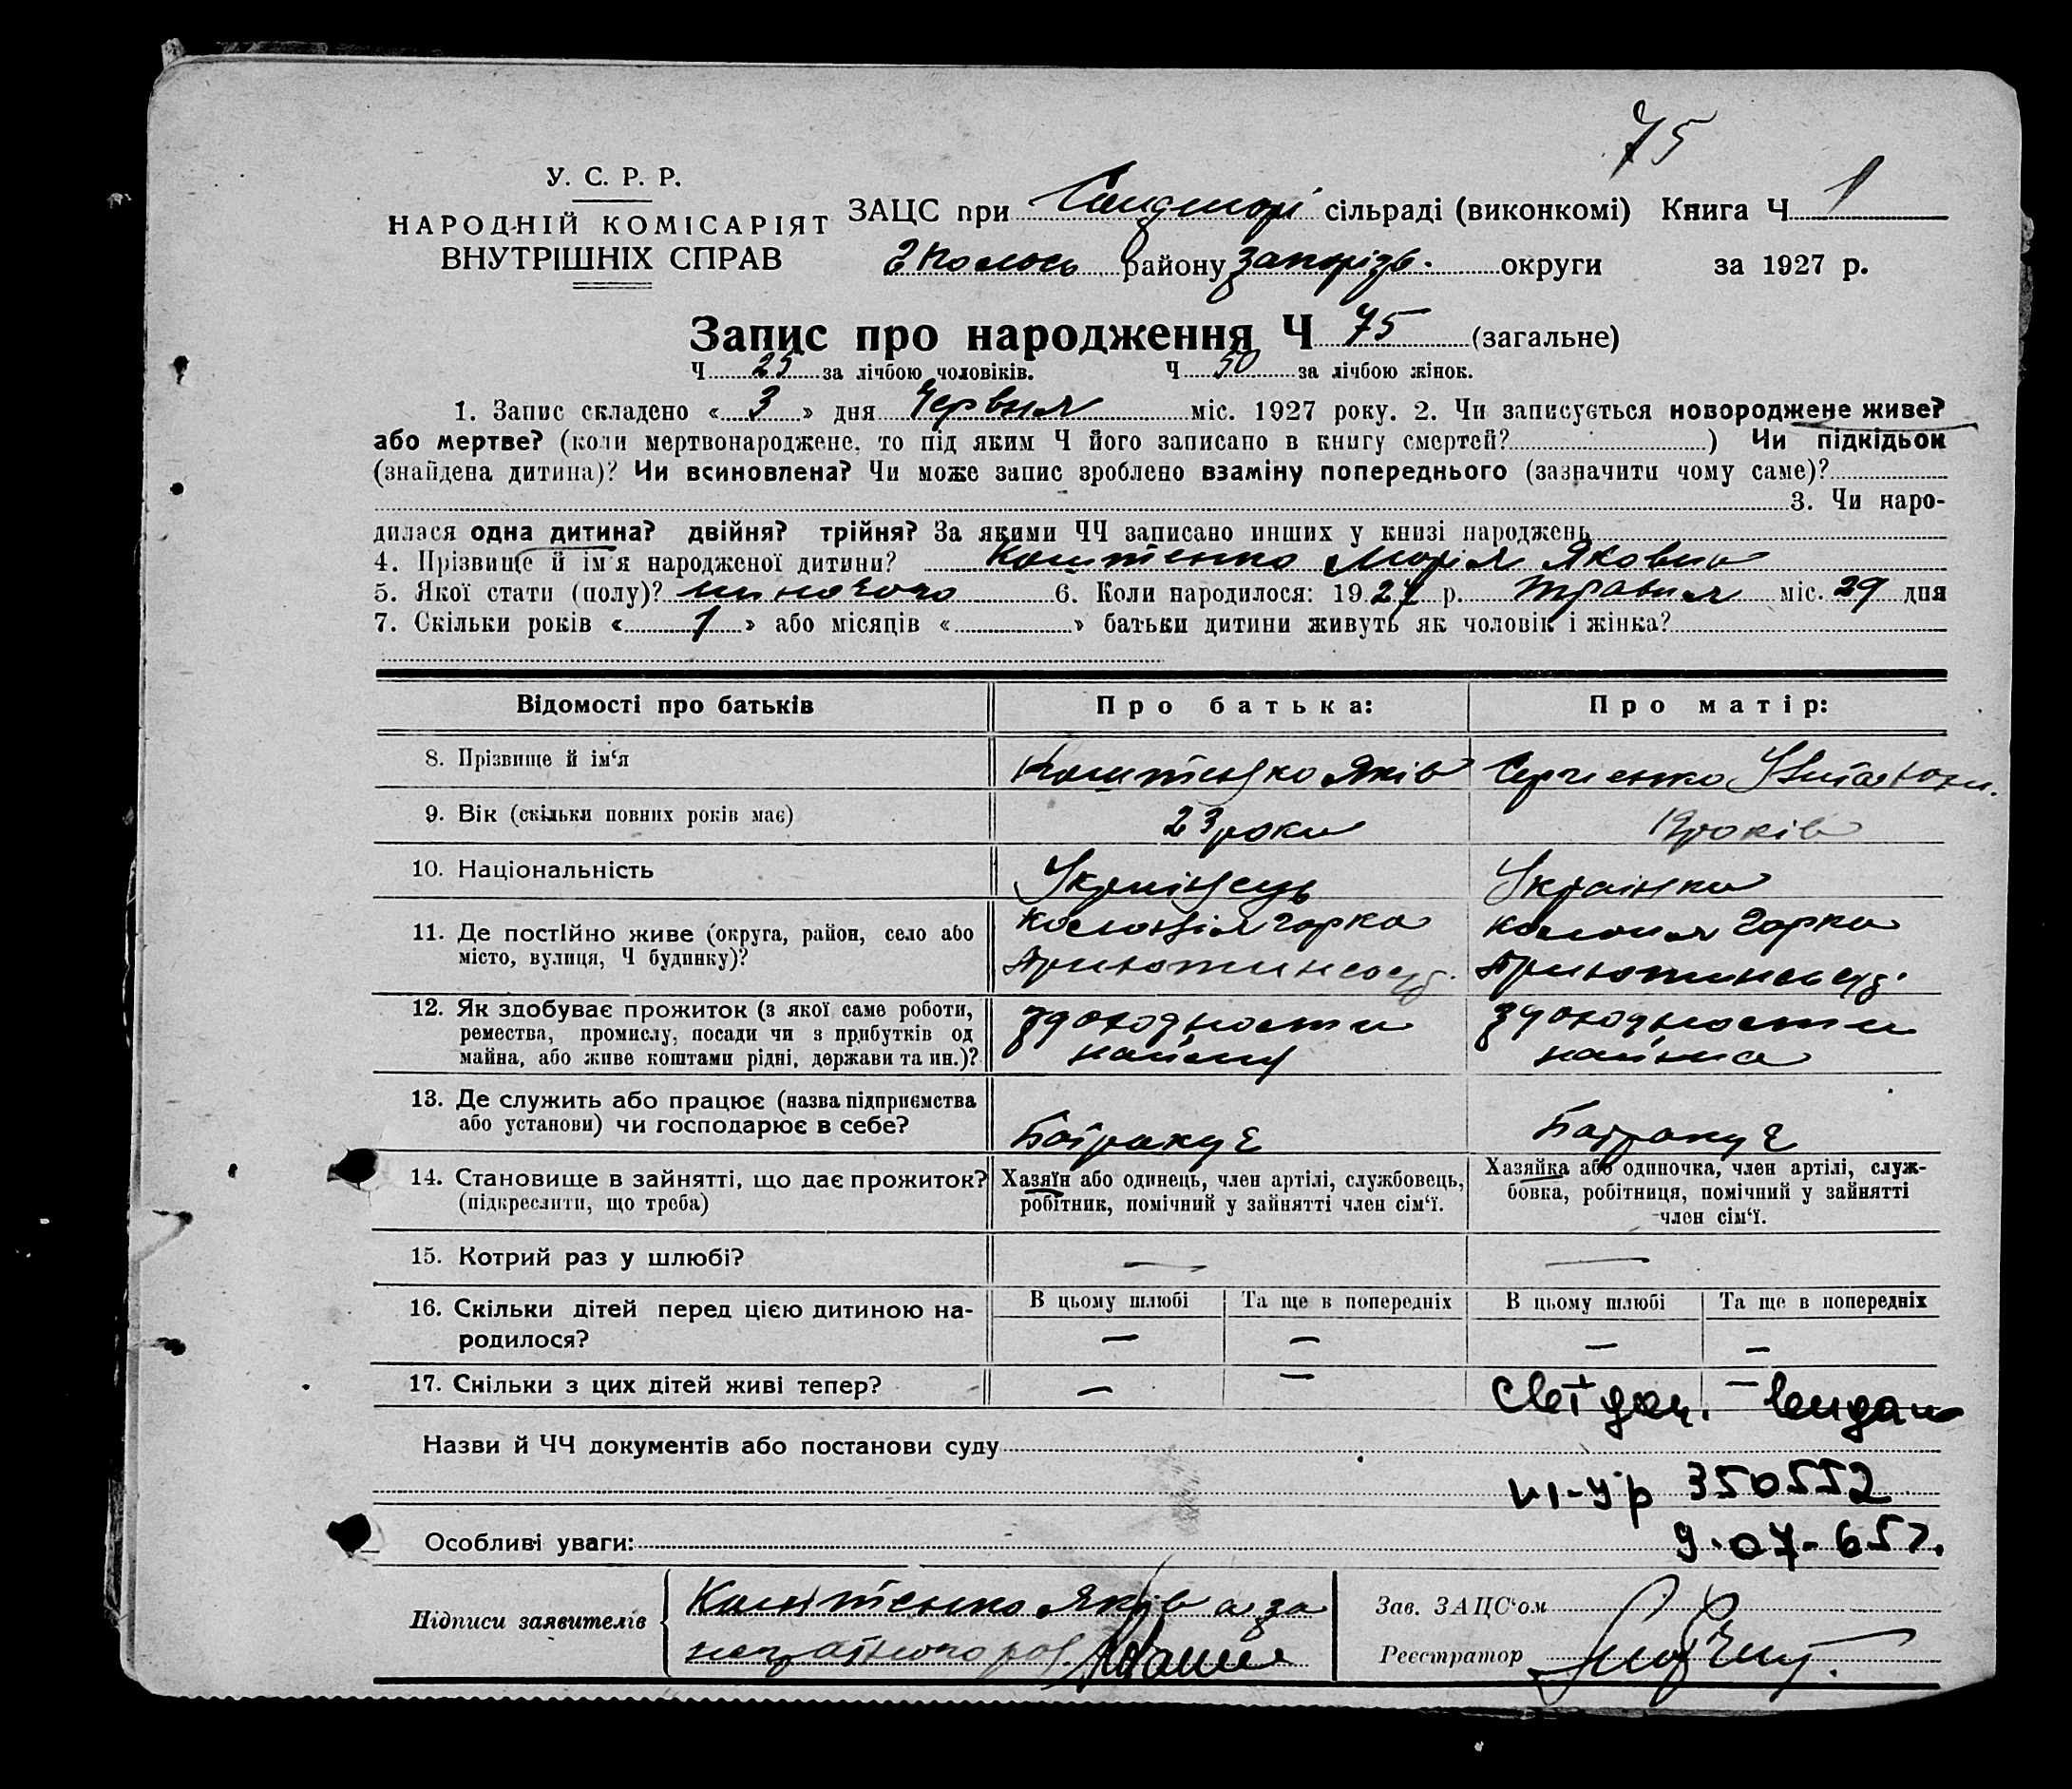 75
У. С. Р. Р.
НАРОДНІЙ КОМІСАРІЯТ
ВНУТРІШНІХ СПРАВ
ЗАЦС при сільраді (виконкомі) Книга Ч 1
району Запорізь. округи за 1927 р.
Запис про народження Ч 75 (загальне)
Ч 25 за лічбою чоловіків. Ч 50 за лічбою жінок.
1. Запис складено « 3 » дня Червня міс. 1927 року. 2. Чи записується новороджене живе?
або мертве? (коли мертвонароджене, то під яким Ч його записано в книгу смертей? ) Чи підкідьок
(знайдена дитина)? Чи всиновлена? Чи може запис зроблено взаміну попереднього (зазначити чому саме)?
3. Чи наро-
дилася одна дитина? двійня? трійня? За якими ЧЧ записано инших у книзі народжень
4. Прізвище й ім'я народженої дитини? Марія Яковна
5. Якої стати (полу)? жиночого 6. Коли народилося: 1927 р. травня міс. 29 дня
7. Скільки років « 1 » або місяців « » батьки дитини живуть як чоловік і жінка?
Відомості про батьків Про батька: Про матір:
8. Прізвище й ім'я Яків Сергиенко
9. Вік (скільки повних років має) 23 роки 19 років
10. Національність Українець Українка
11. Де постійно живе (округа, район, село або
місто, вулиця, Ч будинку)?
Колонія Горка Колония Горка
12. Як здобуває прожиток (з якої саме роботи,
ремества, промислу, посади чи з прибутків од
майна, або живе коштами рідні, держави та ин.)?
найму найма
13. Де служить або працює (назва підприємства
або установи) чи господарює в себе?
Батракує Батракує
14. Становище в зайнятті, що дає прожиток?
(підкреслити, що треба)
Хазяїн або одинець, член артілі, службовець,
робітник, помічний у зайнятті член сім'ї.
Хазяйка або одиночка, член артілі, служ-
бовка, робітниця, помічний у зайнятті
член сім'ї.
15. Котрий раз у шлюбі? — —
16. Скільки дітей перед цією дитиною на-
родилося?
В цьому шлюбі Та ще в попередніх В цьому шлюбі Та ще в попередніх
— — — —
17. Скільки з цих дітей живі тепер? — — — —
Назви й ЧЧ документів або постанови суду
350552
Особливі уваги: 9.07-65г.
Підписи заявителів Яків а за
Зав. ЗАЦС'ом
Реєстратор